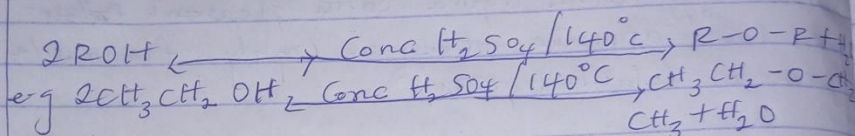 2ROH ⟷ Conc H₂SO₄/140°C → R-O-R + H₂
eg 2CH₃CH₂OH Conc H₂SO₄/140°C → CH₃CH₂-O-CH₂
CH₃ + H₂O